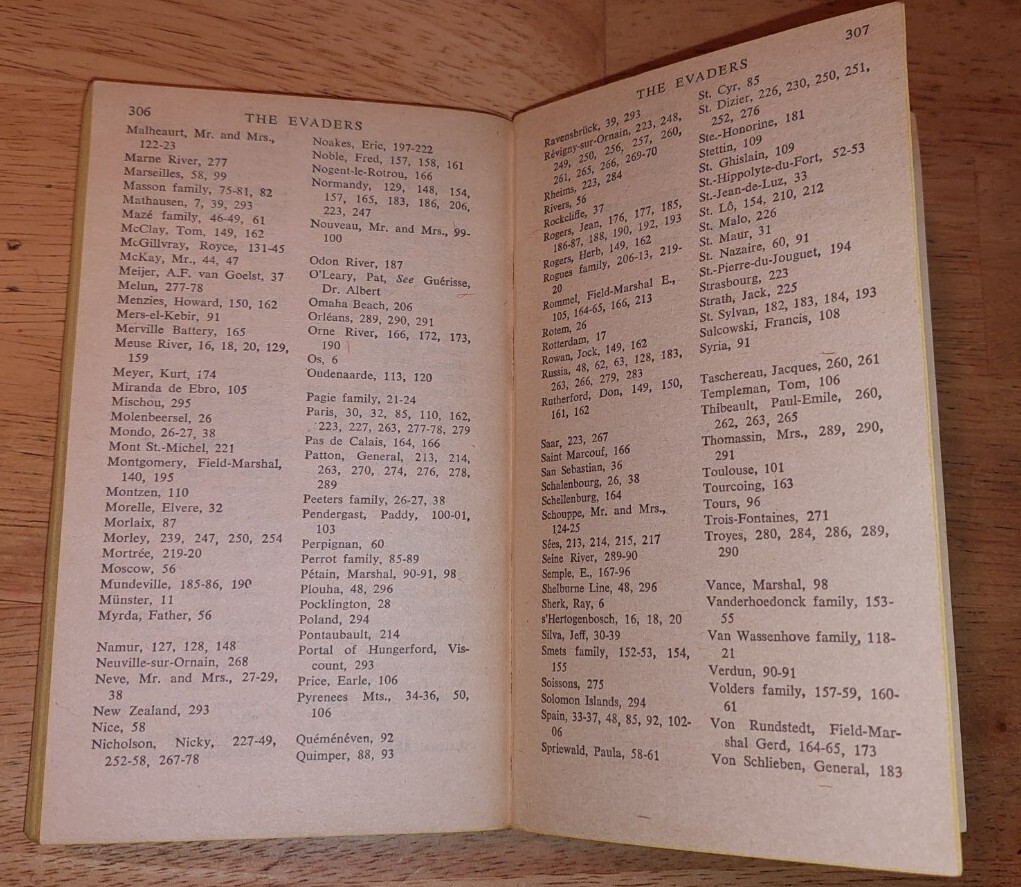 306
THE EVADERS
Malheaurt, Mr. and Mrs.,
122-23
Marne River, 277
Marseilles, 58, 99
Masson family, 75-81, 82
Mathausen, 7, 39, 293
Mazé family, 46-49, 61
McClay, Tom, 149, 162
McGillvray, Royce, 131-45
McKay, Mr., 44, 47
Meijer, A.F. van Goelst, 37
Melun, 277-78
Menzies, Howard, 150, 162
Mers-el-Kebir, 91
Merville Battery, 165
Meuse River, 16, 18, 20, 129,
159
Meyer, Kurt, 174
Miranda de Ebro, 105
Mischou, 295
Molenbeersel, 26
Mondo, 26-27, 38
Mont St.-Michel, 221
Montgomery, Field-Marshal,
140, 195
Montzen, 110
Morelle, Elvere, 32
Morlaix, 87
Morley, 239, 247, 250, 254
Mortrée, 219-20
Moscow, 56
Mundeville, 185-86, 190
Münster, 11
Myrda, Father, 56
Namur, 127, 128, 148
Neuville-sur-Ornain, 268
Neve, Mr. and Mrs., 27-29,
38
New Zealand, 293
Nice, 58
Nicholson, Nicky, 227-49,
252-58, 267-78
Noakes, Eric, 197-222
Noble, Fred, 157, 158, 161
Nogent-le-Rotrou, 166
Normandy, 129, 148, 154,
157, 165, 183, 186, 206,
223, 247
Nouveau, Mr. and Mrs., 99-
100
Odon River, 187
O'Leary, Pat, See Guérisse,
Dr. Albert
Omaha Beach, 206
Orléans, 289, 290, 291
Orne River, 166, 172, 173,
190
Os, 6
Oudenaarde, 113, 120
Pagie family, 21-24
Paris, 30, 32, 85, 110, 162,
223, 227, 263, 277-78, 279
Pas de Calais, 164, 166
Patton, General, 213, 214,
263, 270, 274, 276, 278,
289
Peeters family, 26-27, 38
Pendergast, Paddy, 100-01,
103
Perpignan, 60
Perrot family, 85-89
Pétain, Marshal, 90-91, 98
Plouha, 48, 296
Pocklington, 28
Poland, 294
Pontaubault, 214
Portal of Hungerford, Vis-
count, 293
Price, Earle, 106
Pyrenees Mts., 34-36, 50,
106
Quéménéven, 92
Quimper, 88, 93
THE EVADERS
307
Ravensbrück, 39, 293
Révigny-sur-Ornain, 223, 248,
249, 250, 256, 257, 260,
261, 265, 266, 269-70
Rheims, 223, 284
Rivers, 56
Rockcliffe, 37
Rogers, Jean, 176, 177, 185,
186-87, 188, 190, 192, 193
Rogers, Herb, 149, 162
Rogues family, 206-13, 219-
20
Rommel, Field-Marshal E.,
105, 164-65, 166, 213
Rotem, 26
Rotterdam, 17
Rowan, Jock, 149, 162
Russia, 48, 62, 63, 128, 183,
263, 266, 279, 283
Rutherford, Don, 149, 150,
161, 162
Saar, 223, 267
Saint Marcouf, 166
San Sebastian, 36
Schalenbourg, 26, 38
Schellenburg, 164
Schouppe, Mr. and Mrs.,
124-25
Sées, 213, 214, 215, 217
Seine River, 289-90
Semple, E., 167-96
Shelburne Line, 48, 296
Sherk, Ray, 6
s'Hertogenbosch, 16, 18, 20
Silva, Jeff, 30-39
Smets family, 152-53, 154,
155
Soissons, 275
Solomon Islands, 294
Spain, 33-37, 48, 85, 92, 102-
06
Spriewald, Paula, 58-61
St. Cyr, 85
St. Dizier, 226, 230, 250, 251,
252, 276
Ste.-Honorine, 181
Stettin, 109
St. Ghislain, 109
St.-Hippolyte-du-Fort, 52-53
St.-Jean-de-Luz, 33
St. Lô, 154, 210, 212
St. Malo, 226
St. Maur, 31
St. Nazaire, 60, 91
St.-Pierre-du-Jouguet, 194
Strasbourg, 223
Strath, Jack, 225
St. Sylvan, 182, 183, 184, 193
Sulcowski, Francis, 108
Syria, 91
Taschereau, Jacques, 260, 261
Templeman, Tom, 106
Thibeault, Paul-Emile, 260,
262, 263, 265
Thomassin, Mrs., 289, 290,
291
Toulouse, 101
Tourcoing, 163
Tours, 96
Trois-Fontaines, 271
Troyes, 280, 284, 286, 289,
290
Vance, Marshal, 98
Vanderhoedonck family, 153-
55
Van Wassenhove family, 118-
21
Verdun, 90-91
Volders family, 157-59, 160-
61
Von Rundstedt, Field-Mar-
shal Gerd, 164-65, 173
Von Schlieben, General, 183